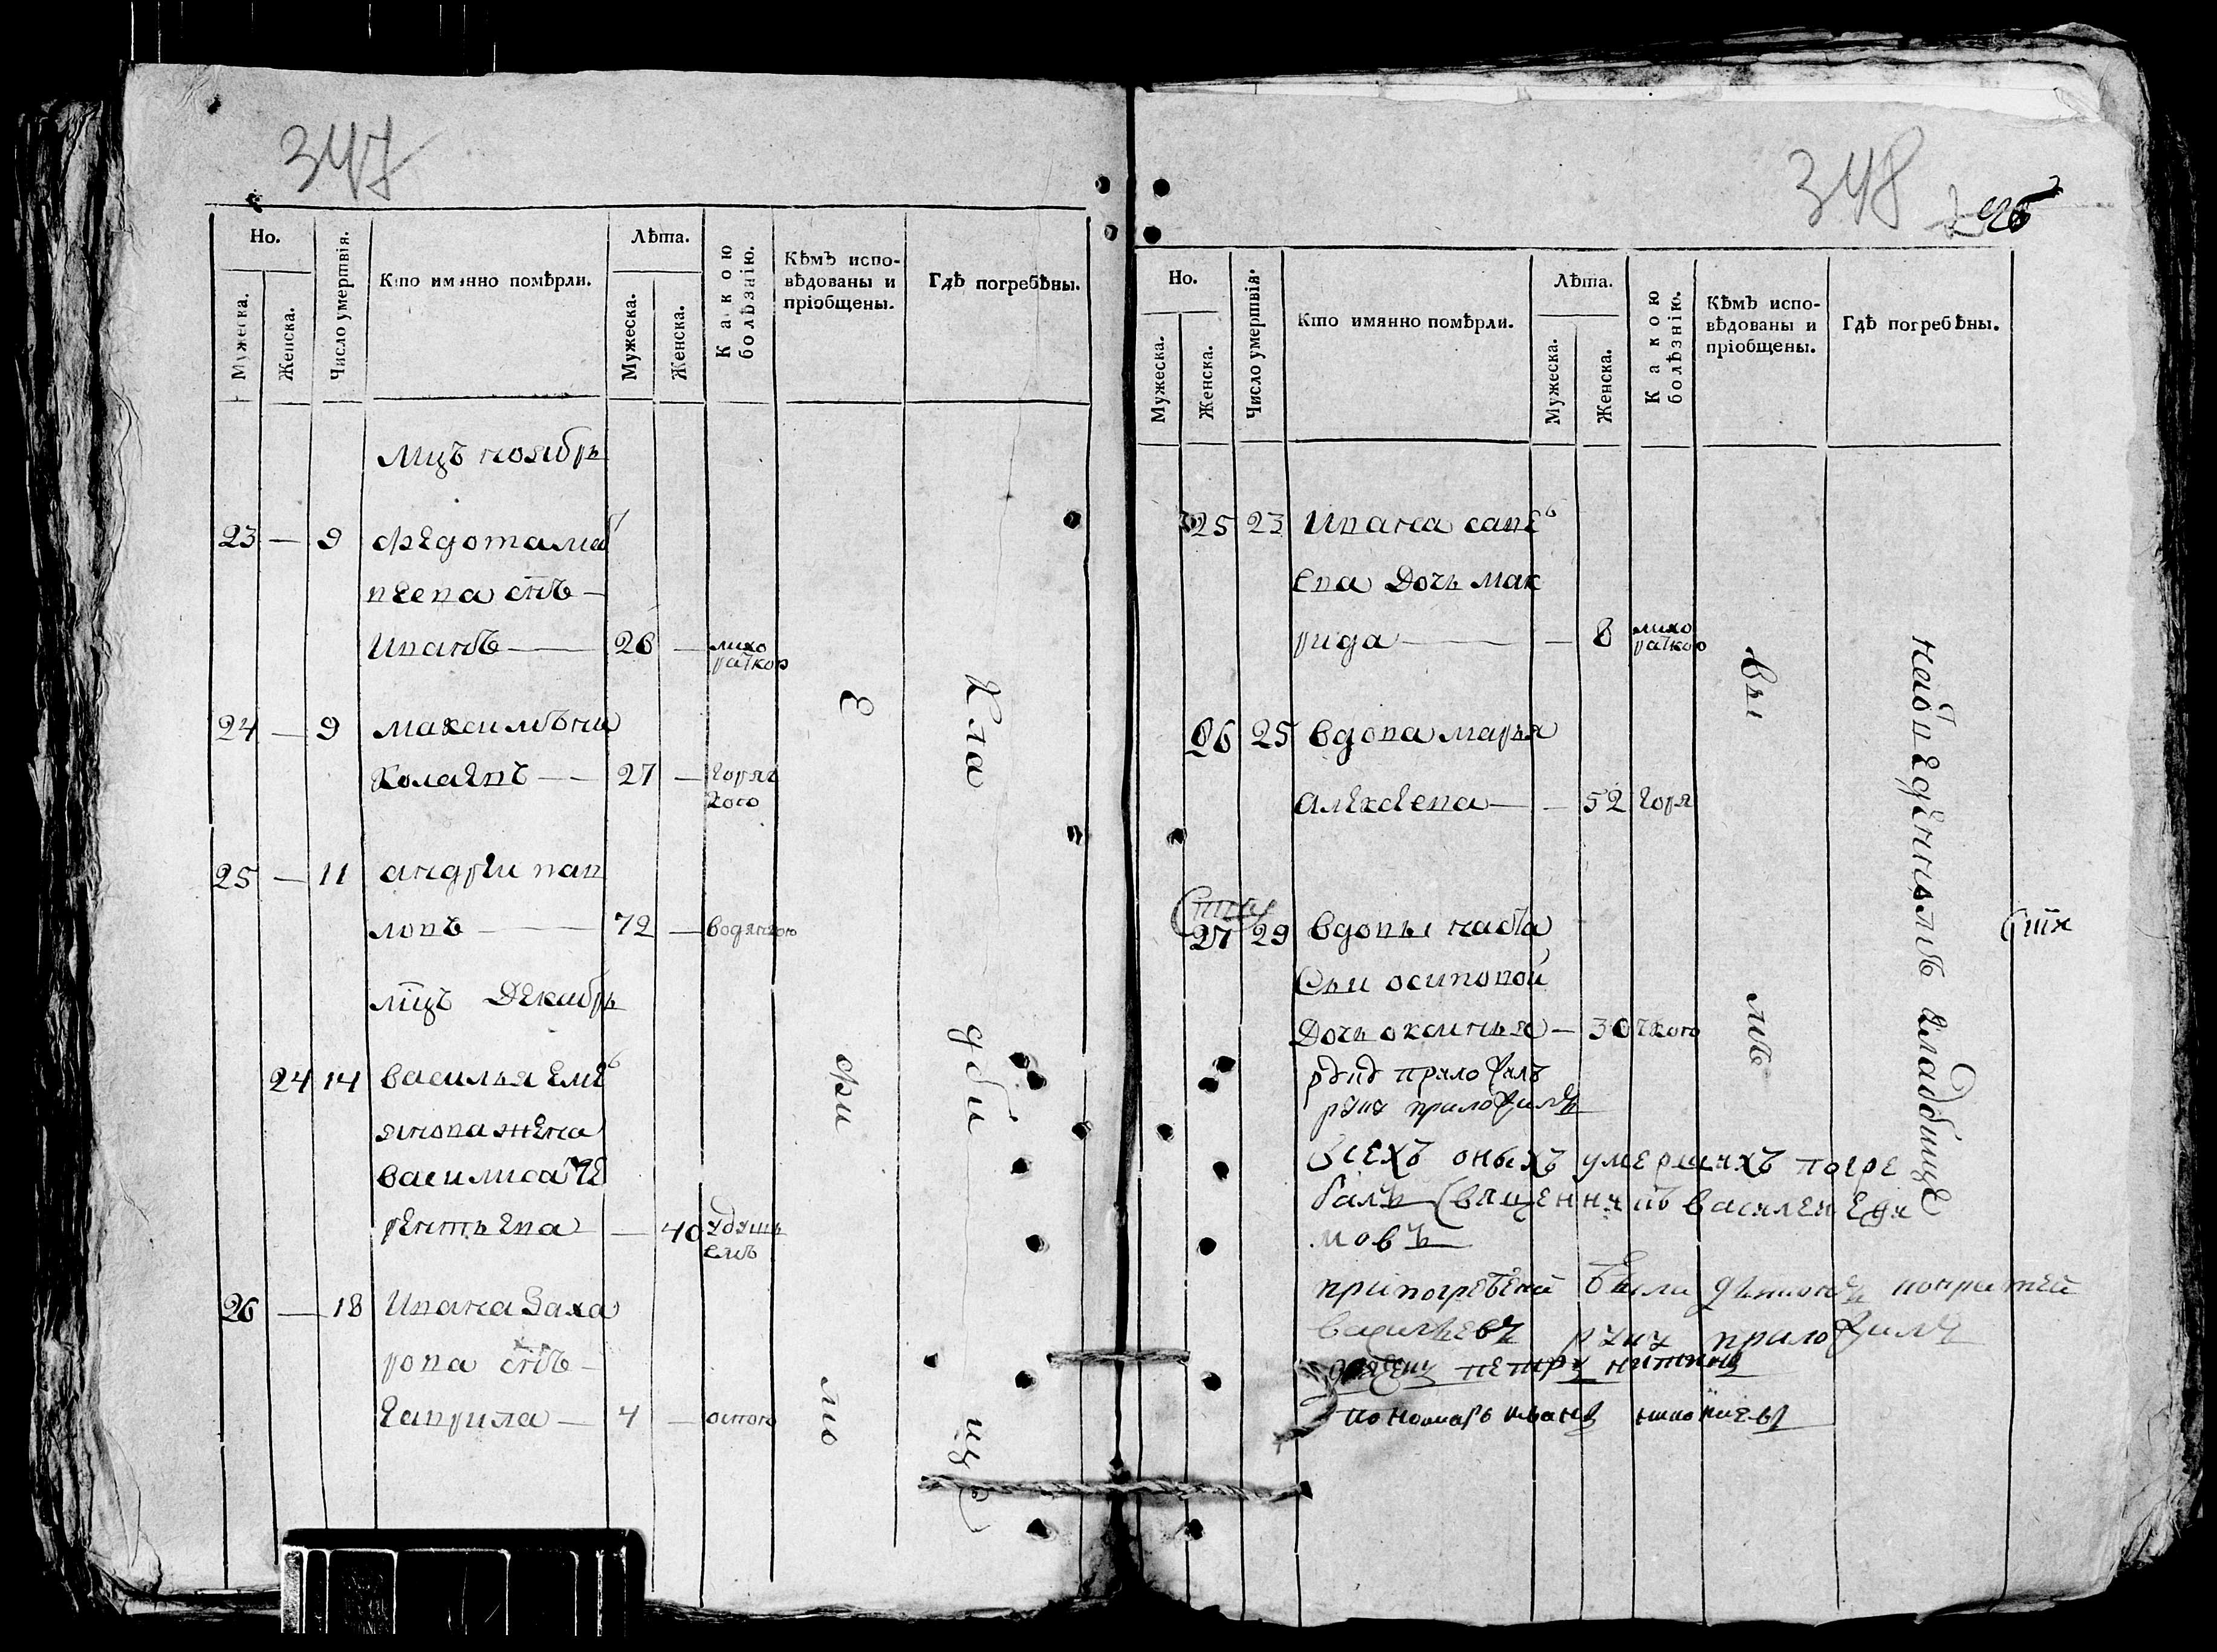 347
Но.
Мужеска.
Женска.
Число умертвія.
Кто имянно помѣрли.
Лѣта.
Мужеска.
Женска.
Какою болѣзнію.
Кѣмъ испо-
вѣдованы и
пріобщены.
Гдѣ погребѣны.
мцъ ноябрь
23 — 9 Федота ма
веева снъ —
Иванъ — 26 — лихо
раткою
24 — 9 максимъ ни
колаевъ — 27 — горяч
кою
25 — 11 андрѣи пав
ловъ — 72 — водяною
мцъ Декабрь
24 14 василья емѣ
янова жена
василиса те
рентьева — 40
26 — 18 Ивана Заха
рова снъ —
гаврила — 4 — оспою
Е
фи
мо
Кла
дби
ще
348
Но.
Мужеска.
Женска.
Число умертвія.
Кто имянно помѣрли.
Лѣта.
Мужеска.
Женска.
Какою болѣзнію.
Кѣмъ испо-
вѣдованы и
пріобщены.
Гдѣ погребѣны.
25 23 Ивана савѣ
ева Дочь мак
рида — — 8 лихо
раткою
26 25 вдова марья
алексеева — — 52 горя
27 29 вдовы наста
сьи осиповой
Дочь оксинья — 30 чкою
вы
мъ
наѡведенномъ кладбище
руку приложилъ
всехъ оныхъ умершихъ погре
балъ священникъ василеи Ефи
мовъ
припогребени были
васильевъ руку приложилъ
петръ никитинъ
пономарь иванъ